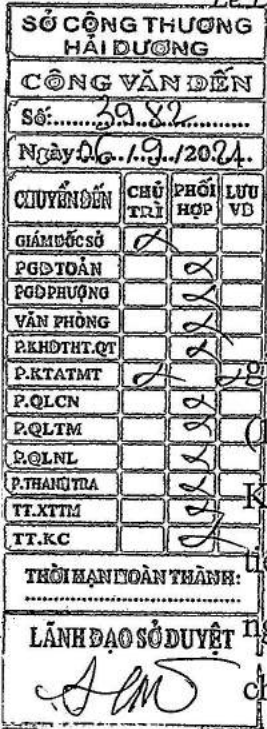 SỞ CÔNG THƯƠNG
HẢI DƯƠNG
CÔNG VĂN ĐẾN
Số: 3982
Ngày 06/9/2021
CHUYỂN ĐẾN CHỦ TRÌ PHỐI HỢP LƯU VB
GIÁM ĐỐC SỞ
PGĐ TOẢN
PGĐ PHƯỢNG
VĂN PHÒNG
P.KHĐTHT.QT
P.KTATMT
P.QLCN
P.QLTM
P.QLNL
P.THANH TRA
TT.XTTM
TT.KC
THỜI HẠN HOÀN THÀNH:
LÃNH ĐẠO SỞ DUYỆT